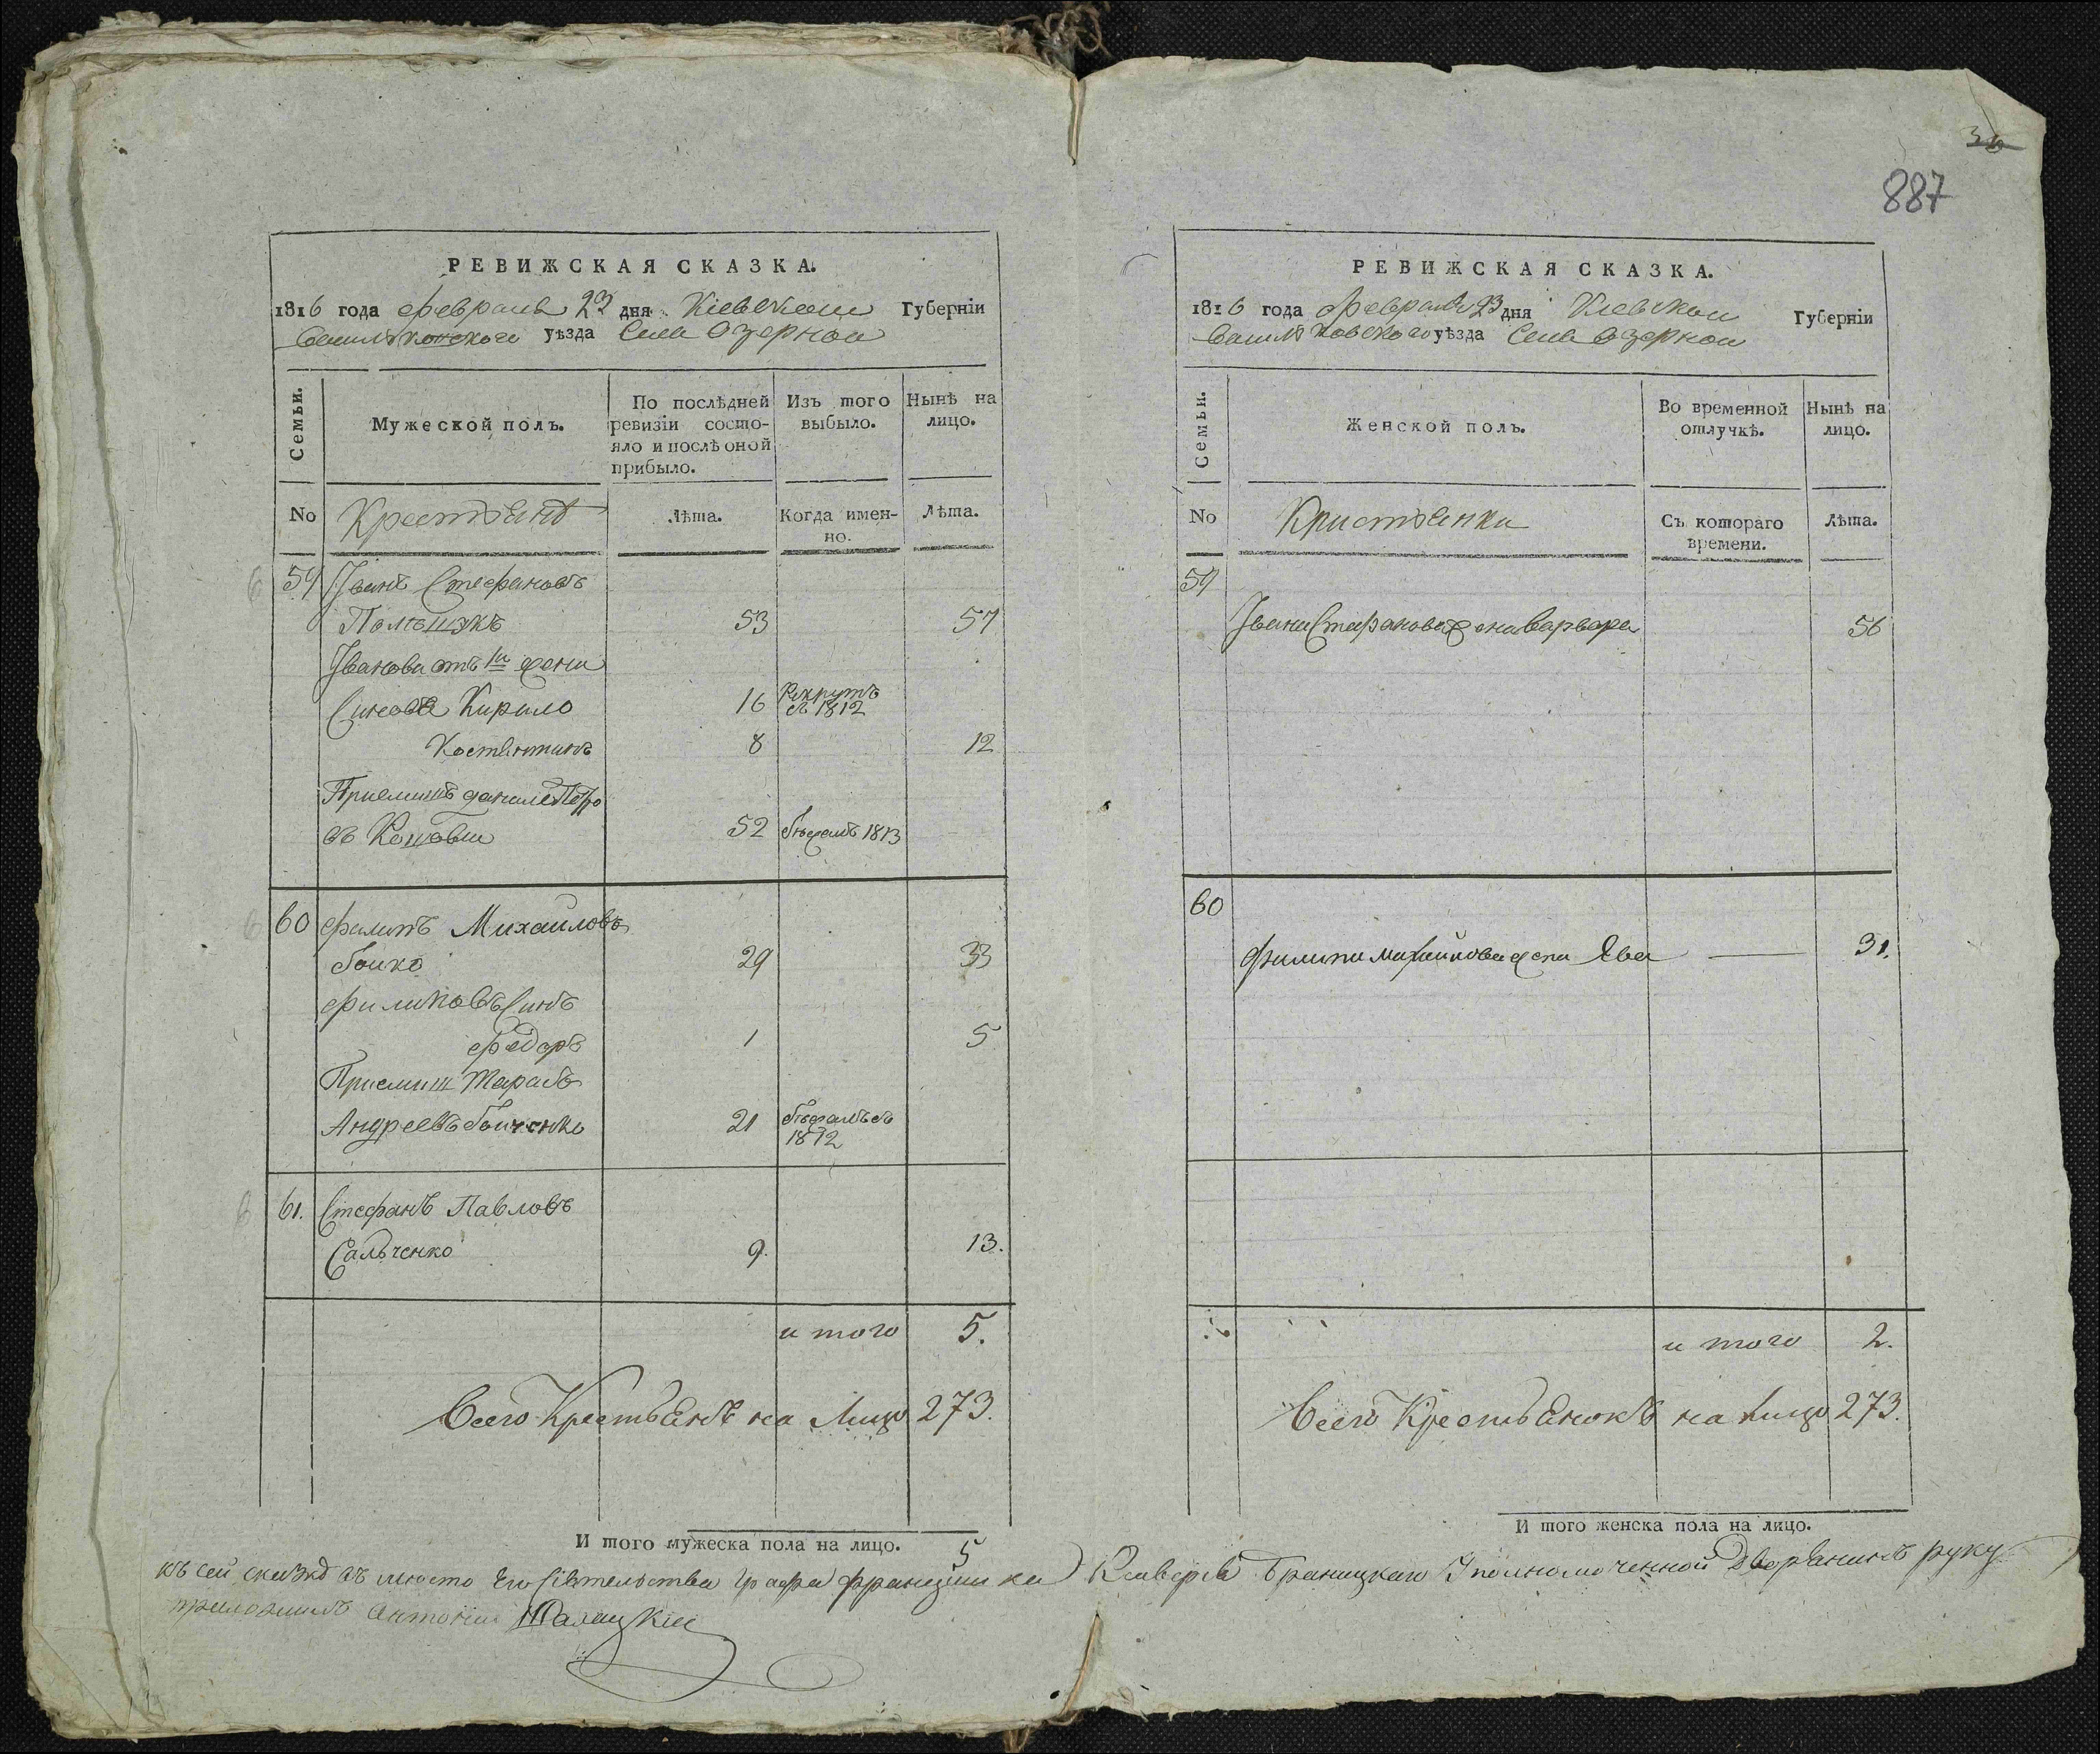 36
887
РЕВИЖСКАЯ СКАЗКА.
1816 года февраля 23 дня Кіевской Губерніи
Васильковского уѣзда Села Озерной
Семьи.
Мужеской полъ.
По послѣдней ревизіи состо-
яло и послѣ оной
прибыло.
Изъ того
выбыло.
Нынѣ на
лицо.
No
Крестьянѣ
Лѣта.
Когда имен-
но.
Лѣта.
59 Іванъ Стефановъ
53 57
Іванова отъ 1й жени
Синове Кирило 16 Рекрутъ
въ 1812
Костянтинъ 8 12
Приемишъ
52 бѣжалъ 1813
60 Филипъ Михайловъ
Бойко 29 33
Филиповъ Синъ
Федоръ 1 5
Приемиш Тарасъ
Андреевъ Бойченко 21 бѣжалъ въ
1812
61. Стефанъ Павловъ
Сальченко 9. 13.
и того 5.
Всего Крестьянъ на Лицо 273.
И того мужеска пола на лицо. 5
РЕВИЖСКАЯ СКАЗКА.
1816 года февраля 23 дня Кіевской Губерніи
Васильковского уѣзда Села Озерной
Семьи.
Женской полъ.
Во временной
отлучкѣ.
Нынѣ на
лицо.
No
Кристьянки
Съ котораго
времени.
Лѣта.
59
Івана Стефанова жена Варвара 56
60
Филипа Михайлова жена Ева 31.
и того 2.
Всего Крестьянокъ на лицо 273.
И того женска пола на лицо.
къ сей сказкѣ въ место Его Сіятельства Графа Францишка Ксаверія Браницкаго Уполномоченной Дворянинъ руку
приложилъ Антоній